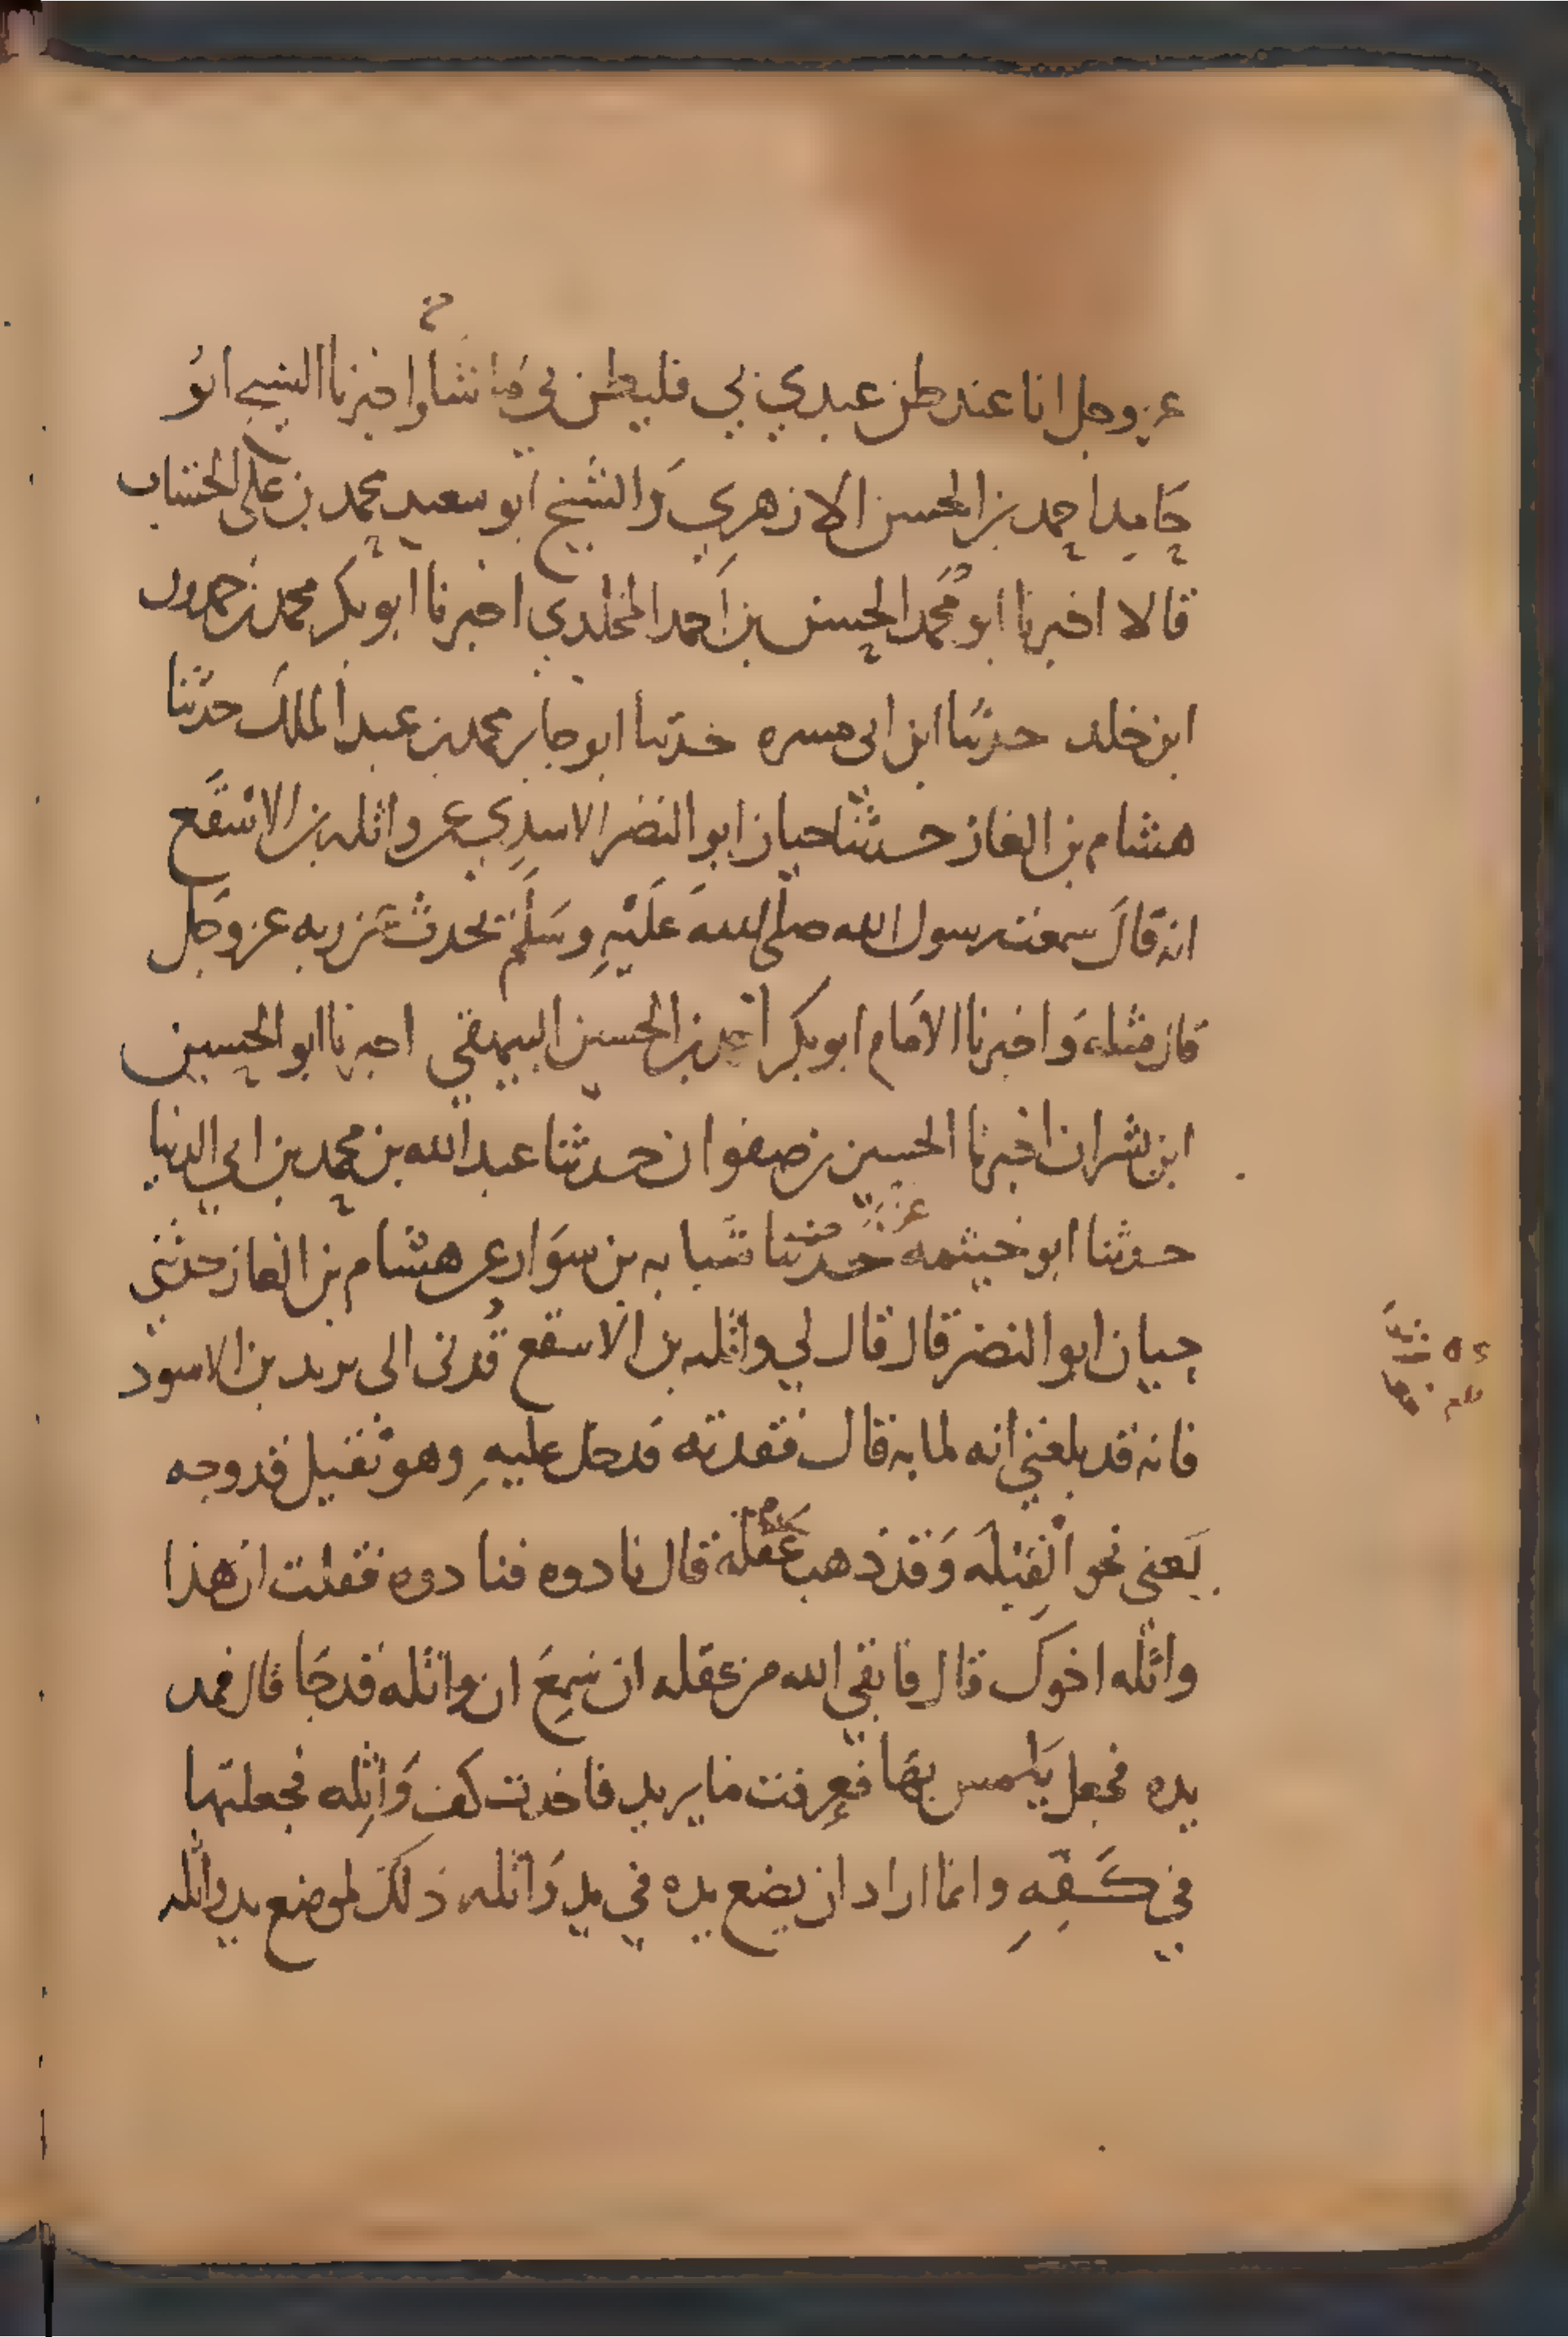 عز وجل انا عند ظن عبدي بي فليظن بي ما شا واخبرنا الشيخ ابو
حامد احمد بن الحسن الازهري والشيخ ابو سعيد محمد بن علي الخشاب
قالا اخبرنا ابو محمد الحسن بن احمد المخلدي اخبرنا ابو بكر محمد بن حمدون
ابن خلد حدثنا ابن ابي مسره حدثنا ابو جابر محمد بن عبد الملك حدثنا
هشام بن الغاز حدثنا حيان ابو النضر الاسدي عن واثله بن الاسقع
انه قال سمعت رسول الله صلى الله عليه وسلم يحدث عن ربه عز وجل
قال مثله واخبرنا الامام ابو بكر احمد بن الحسين البيهقي اخبرنا ابو الحسين
ابن بشران اخبرنا الحسين بن صفوان حدثنا عبد الله بن محمد بن ابي الدنيا
حدثنا ابو خيثمه حدثنا شبابه بن سوار عن هشام بن الغاز حدثني
حيان ابو النضر قال قال لي واثله بن الاسقع قدني الى يزيد بن الاسود
فانه قد بلغني انه لما به قال فقدته فدخل عليه وهو ثقيل قد وجه
يعني نحو القبله وقد ذهب عقله قال نادوه فنادوه فقلت ان هذا
واثله اخوك قال فابقى الله من عقله ان سمع ان واثله قد جا قال فمد
يده فجعل يلمس بها فعرفت ما يريد فاخذت كف واثله فجعلتها
في كفه وانما اراد ان يضع يده في يد واثله ذلك لموضع يد واثله